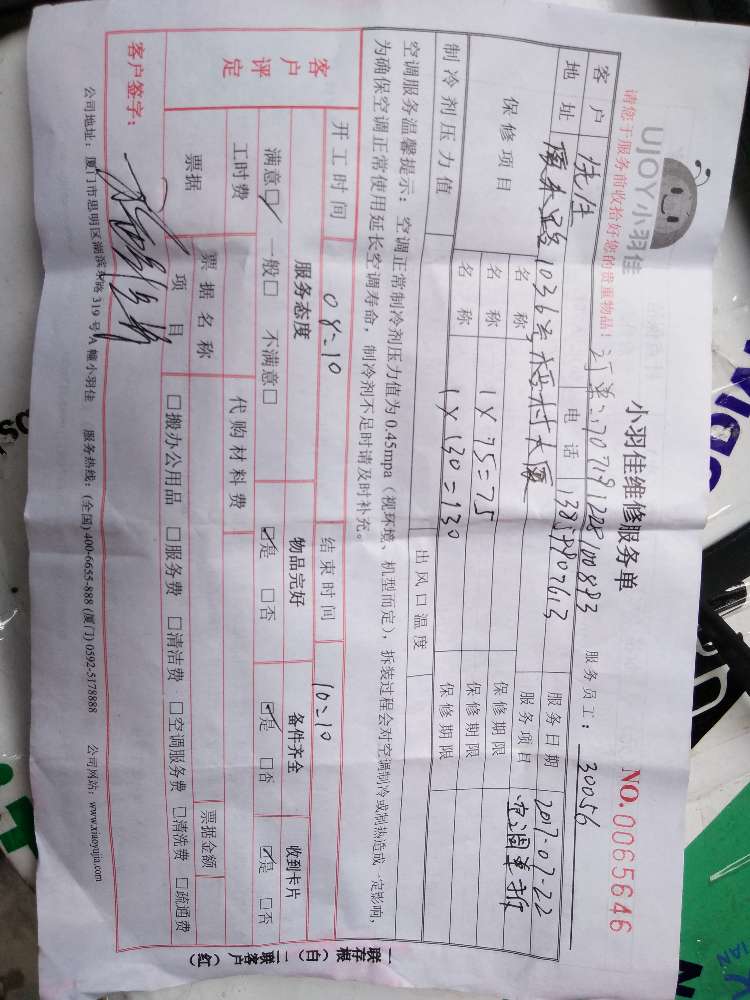 UJOY小羽佳
小羽佳维修服务单
NO.0065646
请您于服务前收拾好您的贵重物品！
服务员工：30056
客户 先生 电话 服务日期 2017-07-22
地址 1036号 大厦 服务项目 空调单拆
保修项目 名称 保修期限
名称 1×75=75 保修期限
名称 1×130=130 保修期限
制冷剂压力值 出风口温度
空调服务温馨提示：空调正常制冷剂压力值为0.45mpa（视环境、机型而定），拆装过程会对空调制冷或制热造成一定影响，
为确保空调正常使用延长空调寿命，制冷剂不足时请及时补充。
开工时间 08:10 结束时间 10:10
客户评定 服务态度 物品完好 备件齐全 收到卡片
满意☑ 一般□ 不满意□ ☑是 □否 ☑是 □否 ☑是 □否
工时费 代购材料费
票据 票据名称 票据金额
项目 □搬办公用品 □服务费 □清洁费 □空调服务费 □清洗费 □疏通费
客户签字：
公司地址：厦门市思明区湖滨东路319号A幢小羽佳 服务热线：(全国)400-6655-888 (厦门)0592-5178888 公司网站：www.xiaoyujia.com
一联存根（白）二联客户（红）